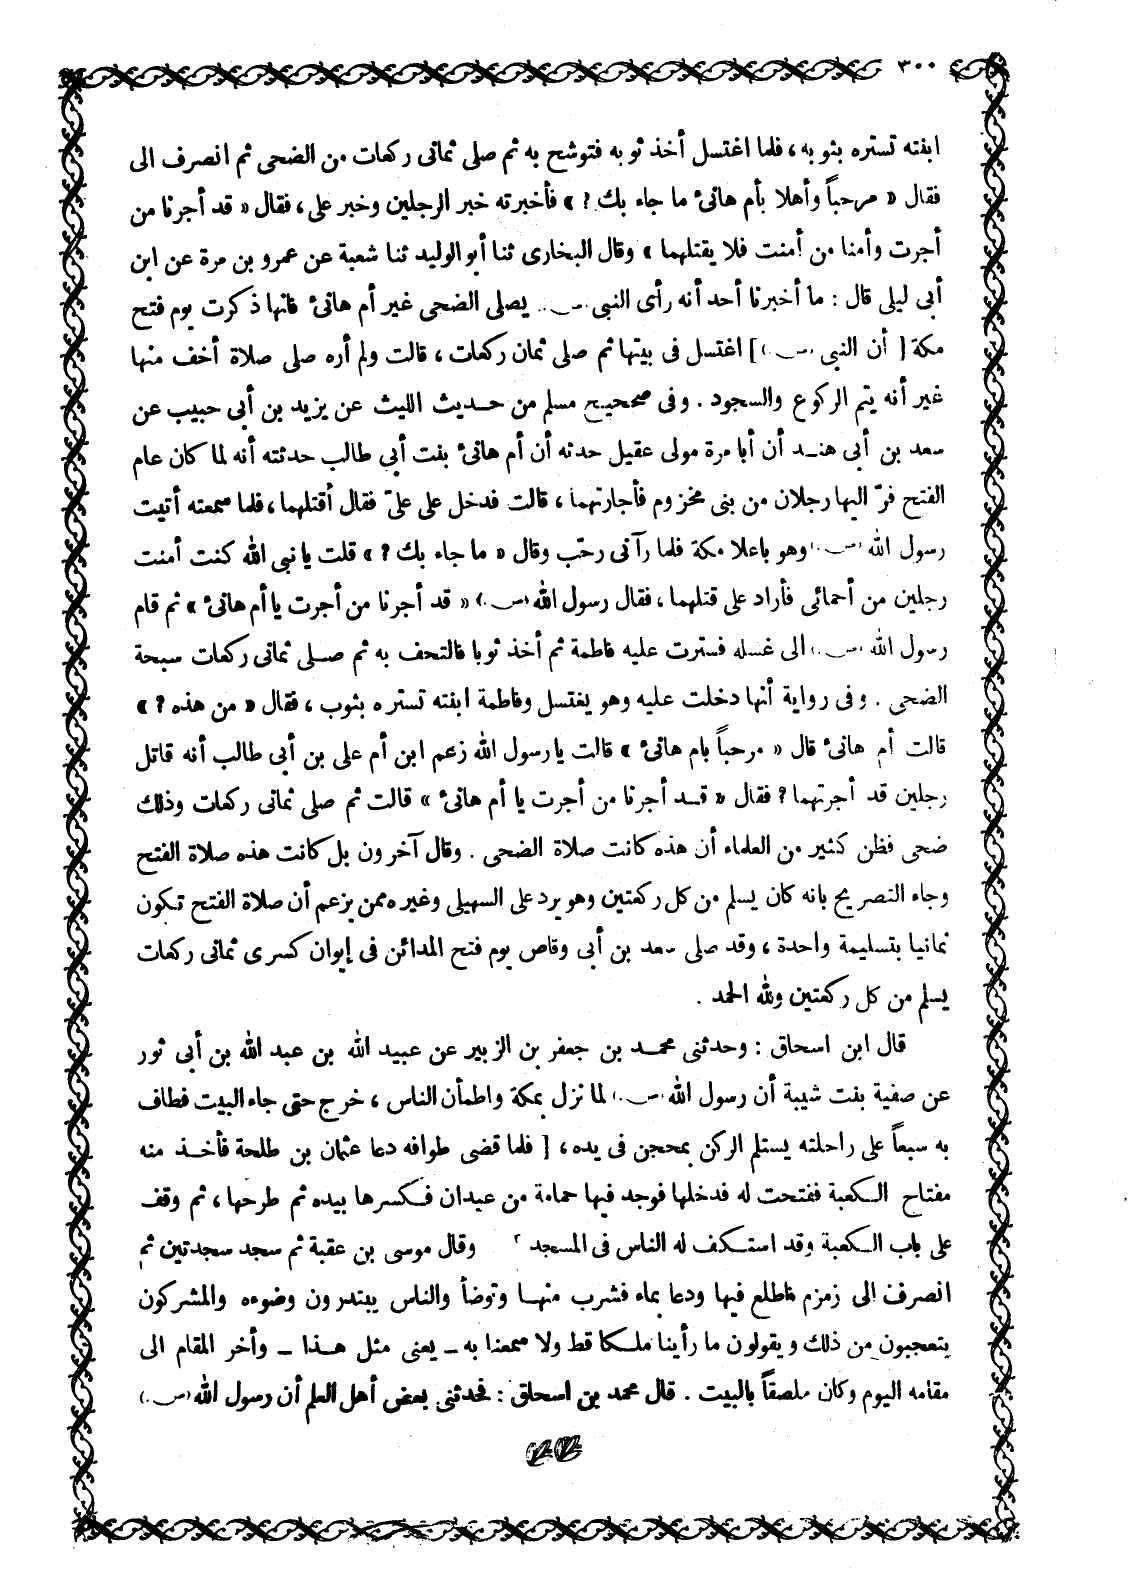 ٣٠٠
ابنته تستره بثوبه، فلما اغتسل أخذ ثوبه فتوشح به ثم صلى ثمانى ركعات من الضحى ثم انصرف الى
فقال « مرحباً وأهلا بأم هانئ ما جاء بك ? » فأخبرته خبر الرجلين وخبر على، فقال « قد أجرنا من
أجرت وأمنا من أمنت فلا يقتلهما » وقال البخارى ثنا أبو الوليد ثنا شعبة عن عمرو بن مرة عن ابن
أبى ليلى قال : ما أخبرنا أحد أنه رأى النبى (ص) يصلى الضحى غير أم هانئ فانها ذكرت يوم فتح
مكة [ أن النبى (ص) ] اغتسل فى بيتها ثم صلى ثمان ركعات، قالت ولم أره صلى صلاة أخف منها
غير أنه يتم الركوع والسجود . وفى صحيح مسلم من حديث الليث عن يزيد بن أبى حبيب عن
سعد بن أبى هند أن أبا مرة مولى عقيل حدثه أن أم هانئ بنت أبى طالب حدثته أنه لما كان عام
الفتح فرّ اليها رجلان من بنى مخزوم فأجارتهما، قالت فدخل على علىّ فقال أقتلهما، فلما سمعته أتيت
رسول الله (ص) وهو باعلا مكة فلما رآنى رحّب وقال « ما جاء بك ? » قلت يا نبى الله كنت أمنت
رجلين من أحمائى فأراد على قتلهما، فقال رسول الله (ص) « قد أجرنا من أجرت يا أم هانئ » ثم قام
رسول الله (ص) الى غسله فسترت عليه فاطمة ثم أخذ ثوبا فالتحف به ثم صلى ثمانى ركعات سبحة
الضحى . وفى رواية أنها دخلت عليه وهو يغتسل وفاطمة ابنته تستره بثوب، فقال « من هذه ? »
قالت أم هانئ قال « مرحباً بام هانئ » قالت يا رسول الله زعم ابن أم على بن أبى طالب أنه قاتل
رجلين قد أجرتهما ? فقال « قد أجرنا من أجرت يا أم هانئ » قالت ثم صلى ثمانى ركعات وذلك
ضحى فظن كثير من العلماء أن هذه كانت صلاة الضحى . وقال آخرون بل كانت هذه صلاة الفتح
وجاء التصريح بانه كان يسلم من كل ركعتين وهو يرد على السهيلى وغيره ممن يزعم أن صلاة الفتح تكون
ثمانيا بتسليمة واحدة، وقد صلى سعد بن أبى وقاص يوم فتح المدائن فى إيوان كسرى ثمانى ركعات
يسلم من كل ركعتين ولله الحمد .
قال ابن اسحاق : وحدثنى محمد بن جعفر بن الزبير عن عبيد الله بن عبد الله بن أبى ثور
عن صفية بنت شيبة أن رسول الله (ص) لما نزل بمكة واطمأن الناس، خرج حتى جاء البيت فطاف
به سبعاً على راحلته يستلم الركن بمحجن فى يده، [ فلما قضى طوافه دعا عثمان بن طلحة فأخذ منه
مفتاح الكعبة ففتحت له فدخلها فوجد فيها حمامة من عيدان فكسرها بيده ثم طرحها، ثم وقف
على باب الكعبة وقد استكف له الناس فى المسجد ] وقال موسى بن عقبة ثم سجد سجدتين ثم
انصرف الى زمزم فاطلع فيها ودعا بماء فشرب منها وتوضأ والناس يبتدرون وضوءه والمشركون
يتعجبون من ذلك ويقولون ما رأينا ملكا قط ولا سمعنا به ــ يعنى مثل هذا ــ وأخر المقام الى
مقامه اليوم وكان ملصقاً بالبيت . قال محمد بن اسحاق : فحدثنى بعض أهل العلم أن رسول الله (ص)